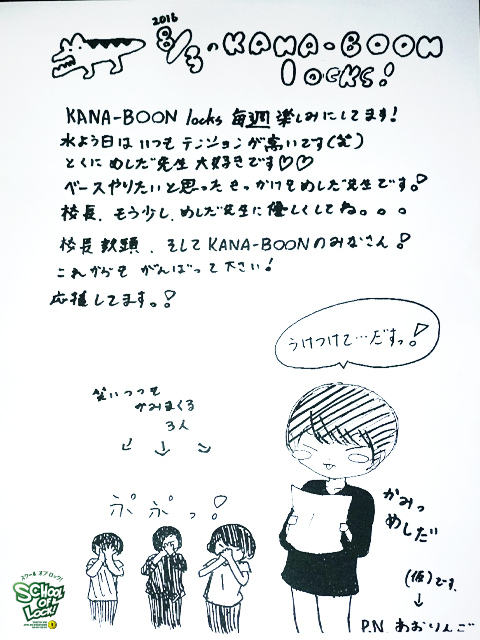 2016
8/3のKANA-BOON
locks!
KANA-BOON locks 毎週 楽しみにしてます!
水よう日は いつも テンションが高いです(笑)
とくに めしだ先生 大好きです♡♡
ベースやりたいと思ったきっかけもめしだ先生です。!
校長、もう少し、めしだ先生に優しくしてね。。。
校長 教頭、そして KANA-BOONのみなさん!
これからも がんばって下さい!
応援してます。!
うけつけて…だすっ。!
笑いつつも
かみまくる
3人
ぷぷっ!
かみっ
めしだ
(仮)です。
P.N. あおりんご
スクール オブ ロック!
SCHOOL OF LOCK!